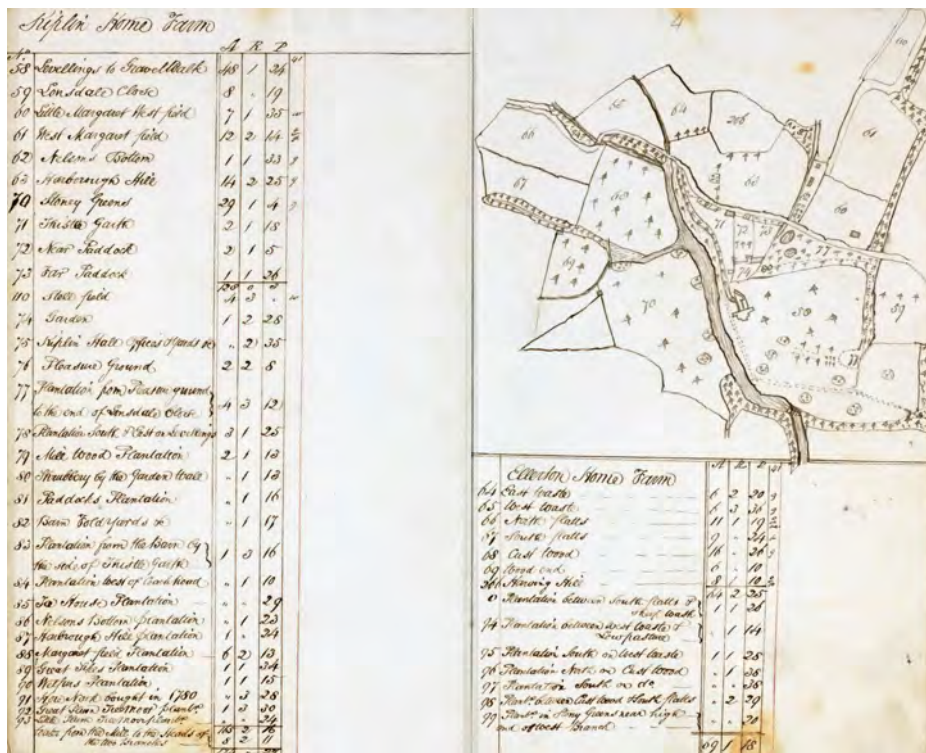 Kiplin Home Farm
A R P
No
58 Levellings to Gravel Walk 48 1 24
59 Lonsdale Close 8 " 19
60 Little Margaret West field 7 1 35
61 West Margaret field 12 2 14
62 Nelsons Bottom 1 1 33
63 Harborough Hill 14 2 25
70 Stoney Greens 29 1 4
71 Thistle Garth 2 1 18
72 Near Paddock 2 1 5
73 Far Paddock 1 1 26
110 field 4 3 "
74 Garden 1 2 28
75 Kiplin Hall Offices Yards &c " 2 35
76 Pleasure Ground 2 2 8
77 Plantation from Pleasure ground
to the end of Lonsdale Close 4 3 12
78 Plantation South & East on Levellings 3 1 25
79 Mill Wood Plantation 2 1 13
80 Shrubbery by the Garden Wall " 1 13
81 Paddocks Plantation " 1 16
82 Barn Fold yards &c " 1 17
83 Plantation from the Barn by
the side of Thistle Garth 1 3 16
84 Plantation West of Coach house " 1 10
85 House Plantation " " 29
86 Nelsons Bottom plantation " 1 23
87 Harborough Hill plantation 1 " 24
88 Margaret field Plantation 6 2 13
89 Great Plantation 1 1 34
90 Plantation 1 1 15
91 bought in 1780 " 3 28
92 Great 1 3 30
93 " " 24
from the Mill to the
the two Branches 8 2 11
4
110
65
64
206
61
66
68
67
60
60
71
72
73
77
74
69
70
58
59
Ellerton Home Farm
A R P
64 East Waste 6 2 20
65 West Waste 6 3 36
66 North flatts 11 1 19
67 South flatts 9 " 24
68 East Wood 16 " 26
69 Wood end 6 " 10
206 Hill 8 1 10
64 2 25
Plantation between South flatts &
Sheep Wash 1 1 26
94 Plantation between West Waste &
Low pasture " 1 14
95 Plantation South on West Waste 1 1 28
96 Plantation North on East Wood " 1 38
97 Plantation South on do. " " 38
98 Plantn. between East Wood & South flatts " 2 29
99 Plantn. on Stony Greens near high
end of West Branch " " 20
69 1 18